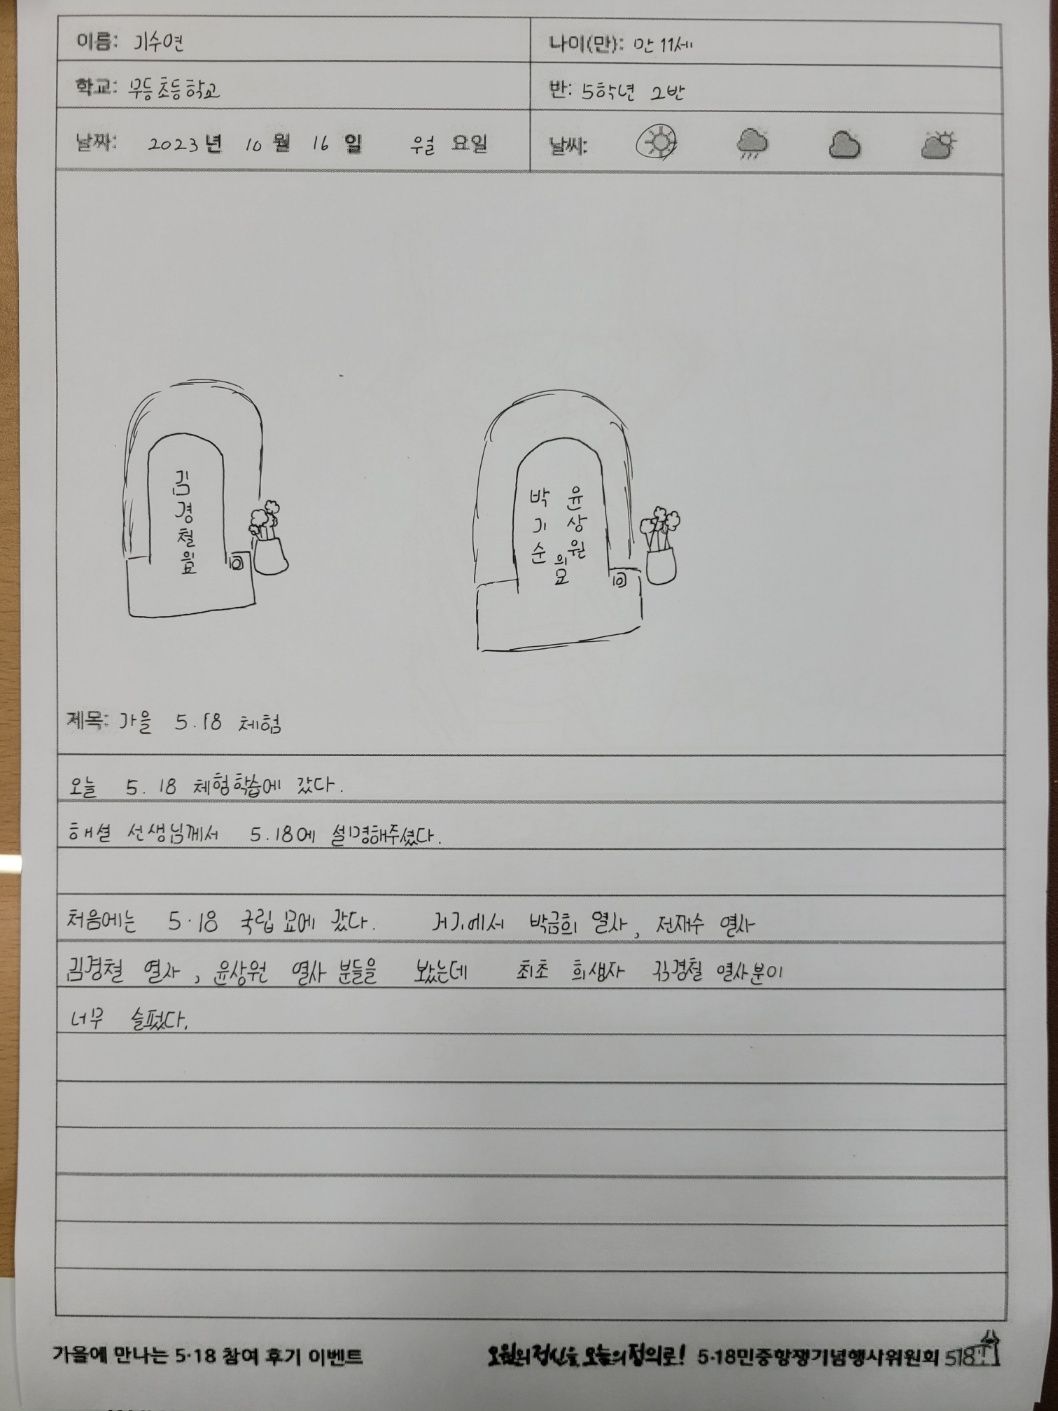 이름: 기수연
나이(만): 만 11세
학교: 무등초등학교
반: 5학년 2반
날짜: 2023년 10월 16일 월 요일
날씨:
김경철의묘
윤상원
박기순
의묘
제목: 가을 5.18 체험
오늘 5.18 체험학습에 갔다.
해설 선생님께서 5.18에 설명해주셨다.
처음에는 5·18 국립 묘에 갔다. 거기에서 박금희 열사, 전재수 열사
김경철 열사, 윤상원 열사 분들을 봤는데 최초 희생자 김경철 열사분이
너무 슬펐다.
가을에 만나는 5·18 참여 후기 이벤트
오월의 정신을 오늘의 정의로! 5·18민중항쟁기념행사위원회 518